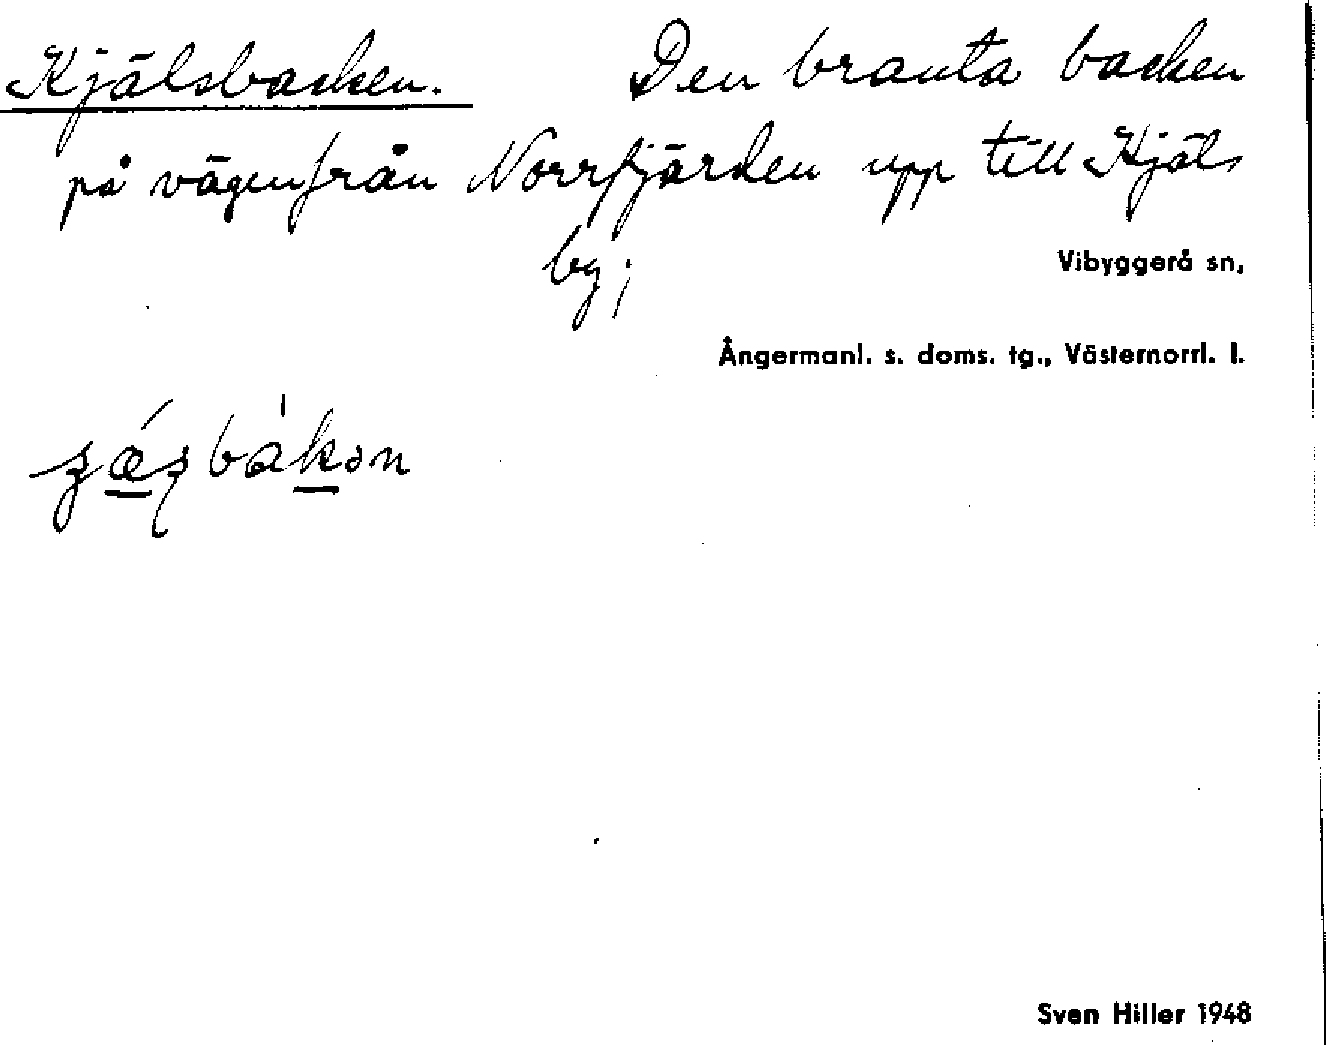 Kjälsbacken. Den branta backen
på vägen från Norrfjärden upp till Kjäls
by;
Vibyggerå sn,
Ångermanl. s. doms. tg., Västernorrl. l.
Sven Hiller 1948